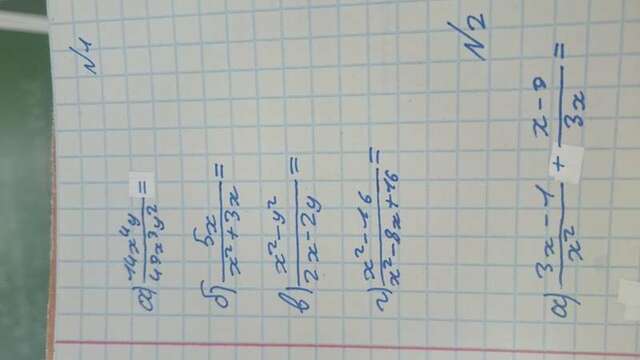 №1
а) 14x⁴y / 49x³y² =
б) 5x / x² + 3x =
в) x² - y² / 2x - 2y =
г) x² - 16 / x² - 8x + 16 =
№2
а) 3x - 1 / x² + x - 9 / 3x =